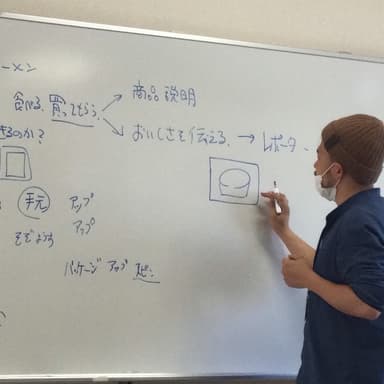 ーメン
食べる、買ってもらう。→ 商品説明
→ おいしさを伝える。→ レポータ
きるのか?
手元 アップ
アップ
パッケージ アップ